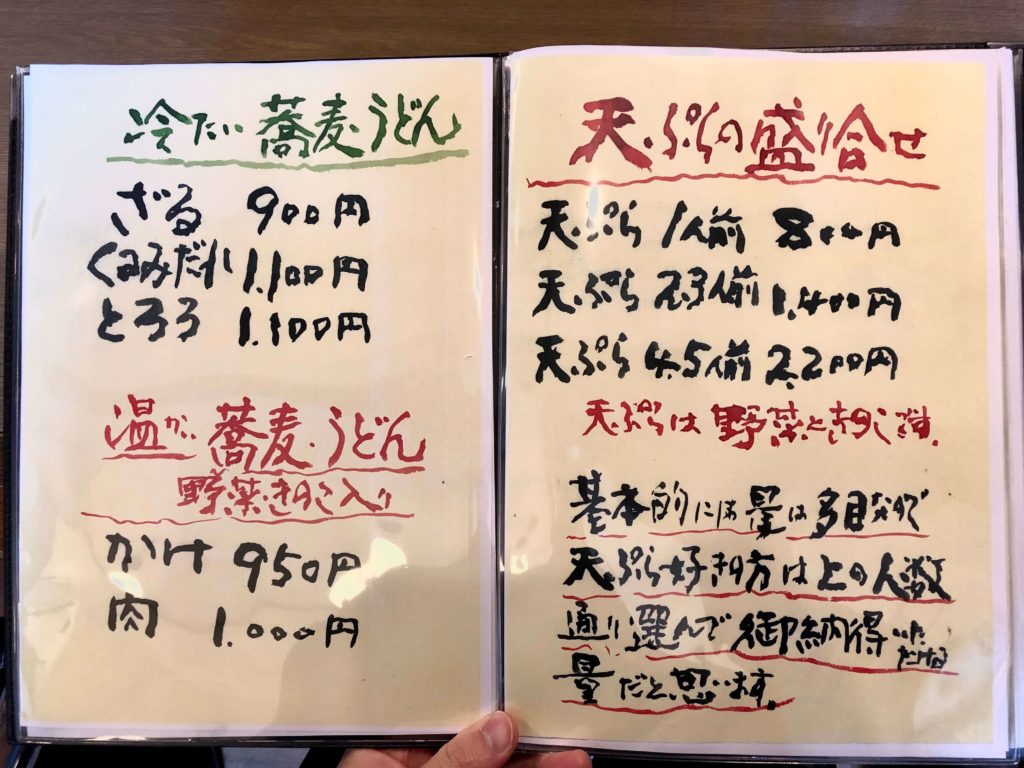 冷たい蕎麦・うどん
ざる 900円
くるみだれ 1.100円
とろろ 1.100円
温かい蕎麦・うどん
野菜・きのこ入り
かけ 950円
肉 1.000円
天ぷらの盛り合せ
天ぷら 1人前 800円
天ぷら 2.3人前 1.400円
天ぷら 4.5人前 2.200円
天ぷらは野菜ときのこです。
基本的には量は多目なので
天ぷら好きの方は上の人数
通り選んで御納得いただける
量だと思います。